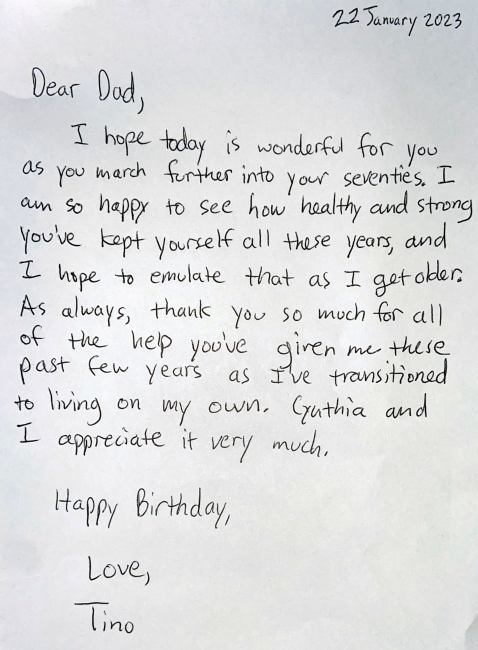 22 January 2023
Dear Dad,
I hope today is wonderful for you
as you march further into your seventies. I
am so happy to see how healthy and strong
you've kept yourself all these years, and
I hope to emulate that as I get older.
As always, thank you so much for all
of the help you've given me these
past few years as I've transitioned
to living on my own. Cynthia and
I appreciate it very much.
Happy Birthday,
Love,
Tino